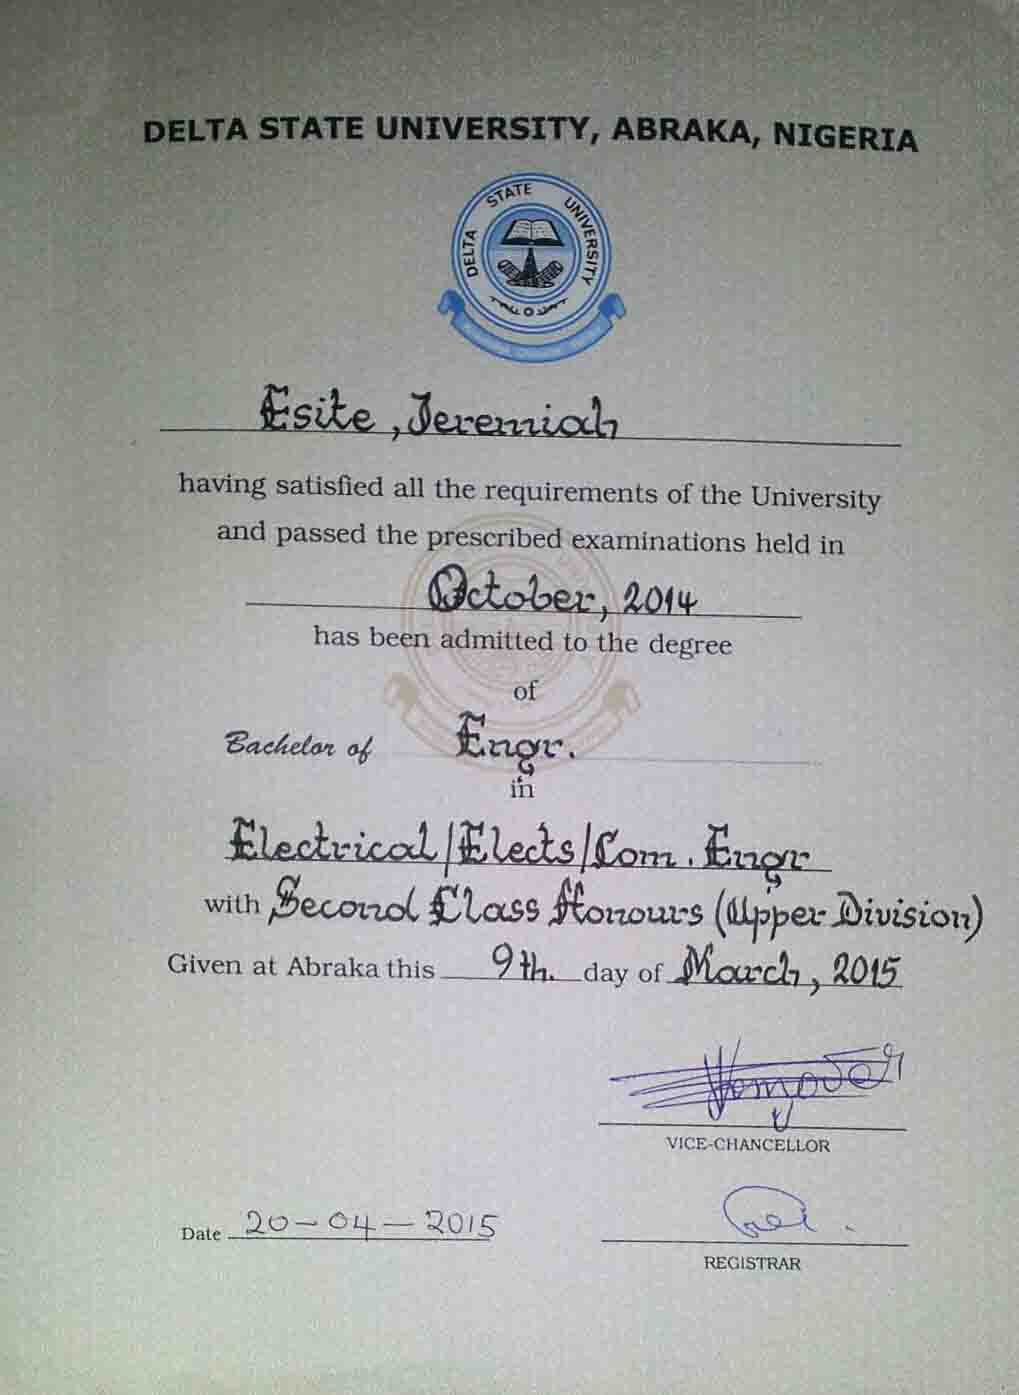 DELTA STATE UNIVERSITY, ABRAKA, NIGERIA
DELTA STATE UNIVERSITY
Esite, Jeremiah
having satisfied all the requirements of the University
and passed the prescribed examinations held in
October, 2014
has been admitted to the degree
of
Bachelor of Engr.
in
Electrical/Elects/Com. Engr
with Second Class Honours (Upper Division)
Given at Abraka this 9th. day of March, 2015
VICE-CHANCELLOR
Date 20-04-2015
REGISTRAR